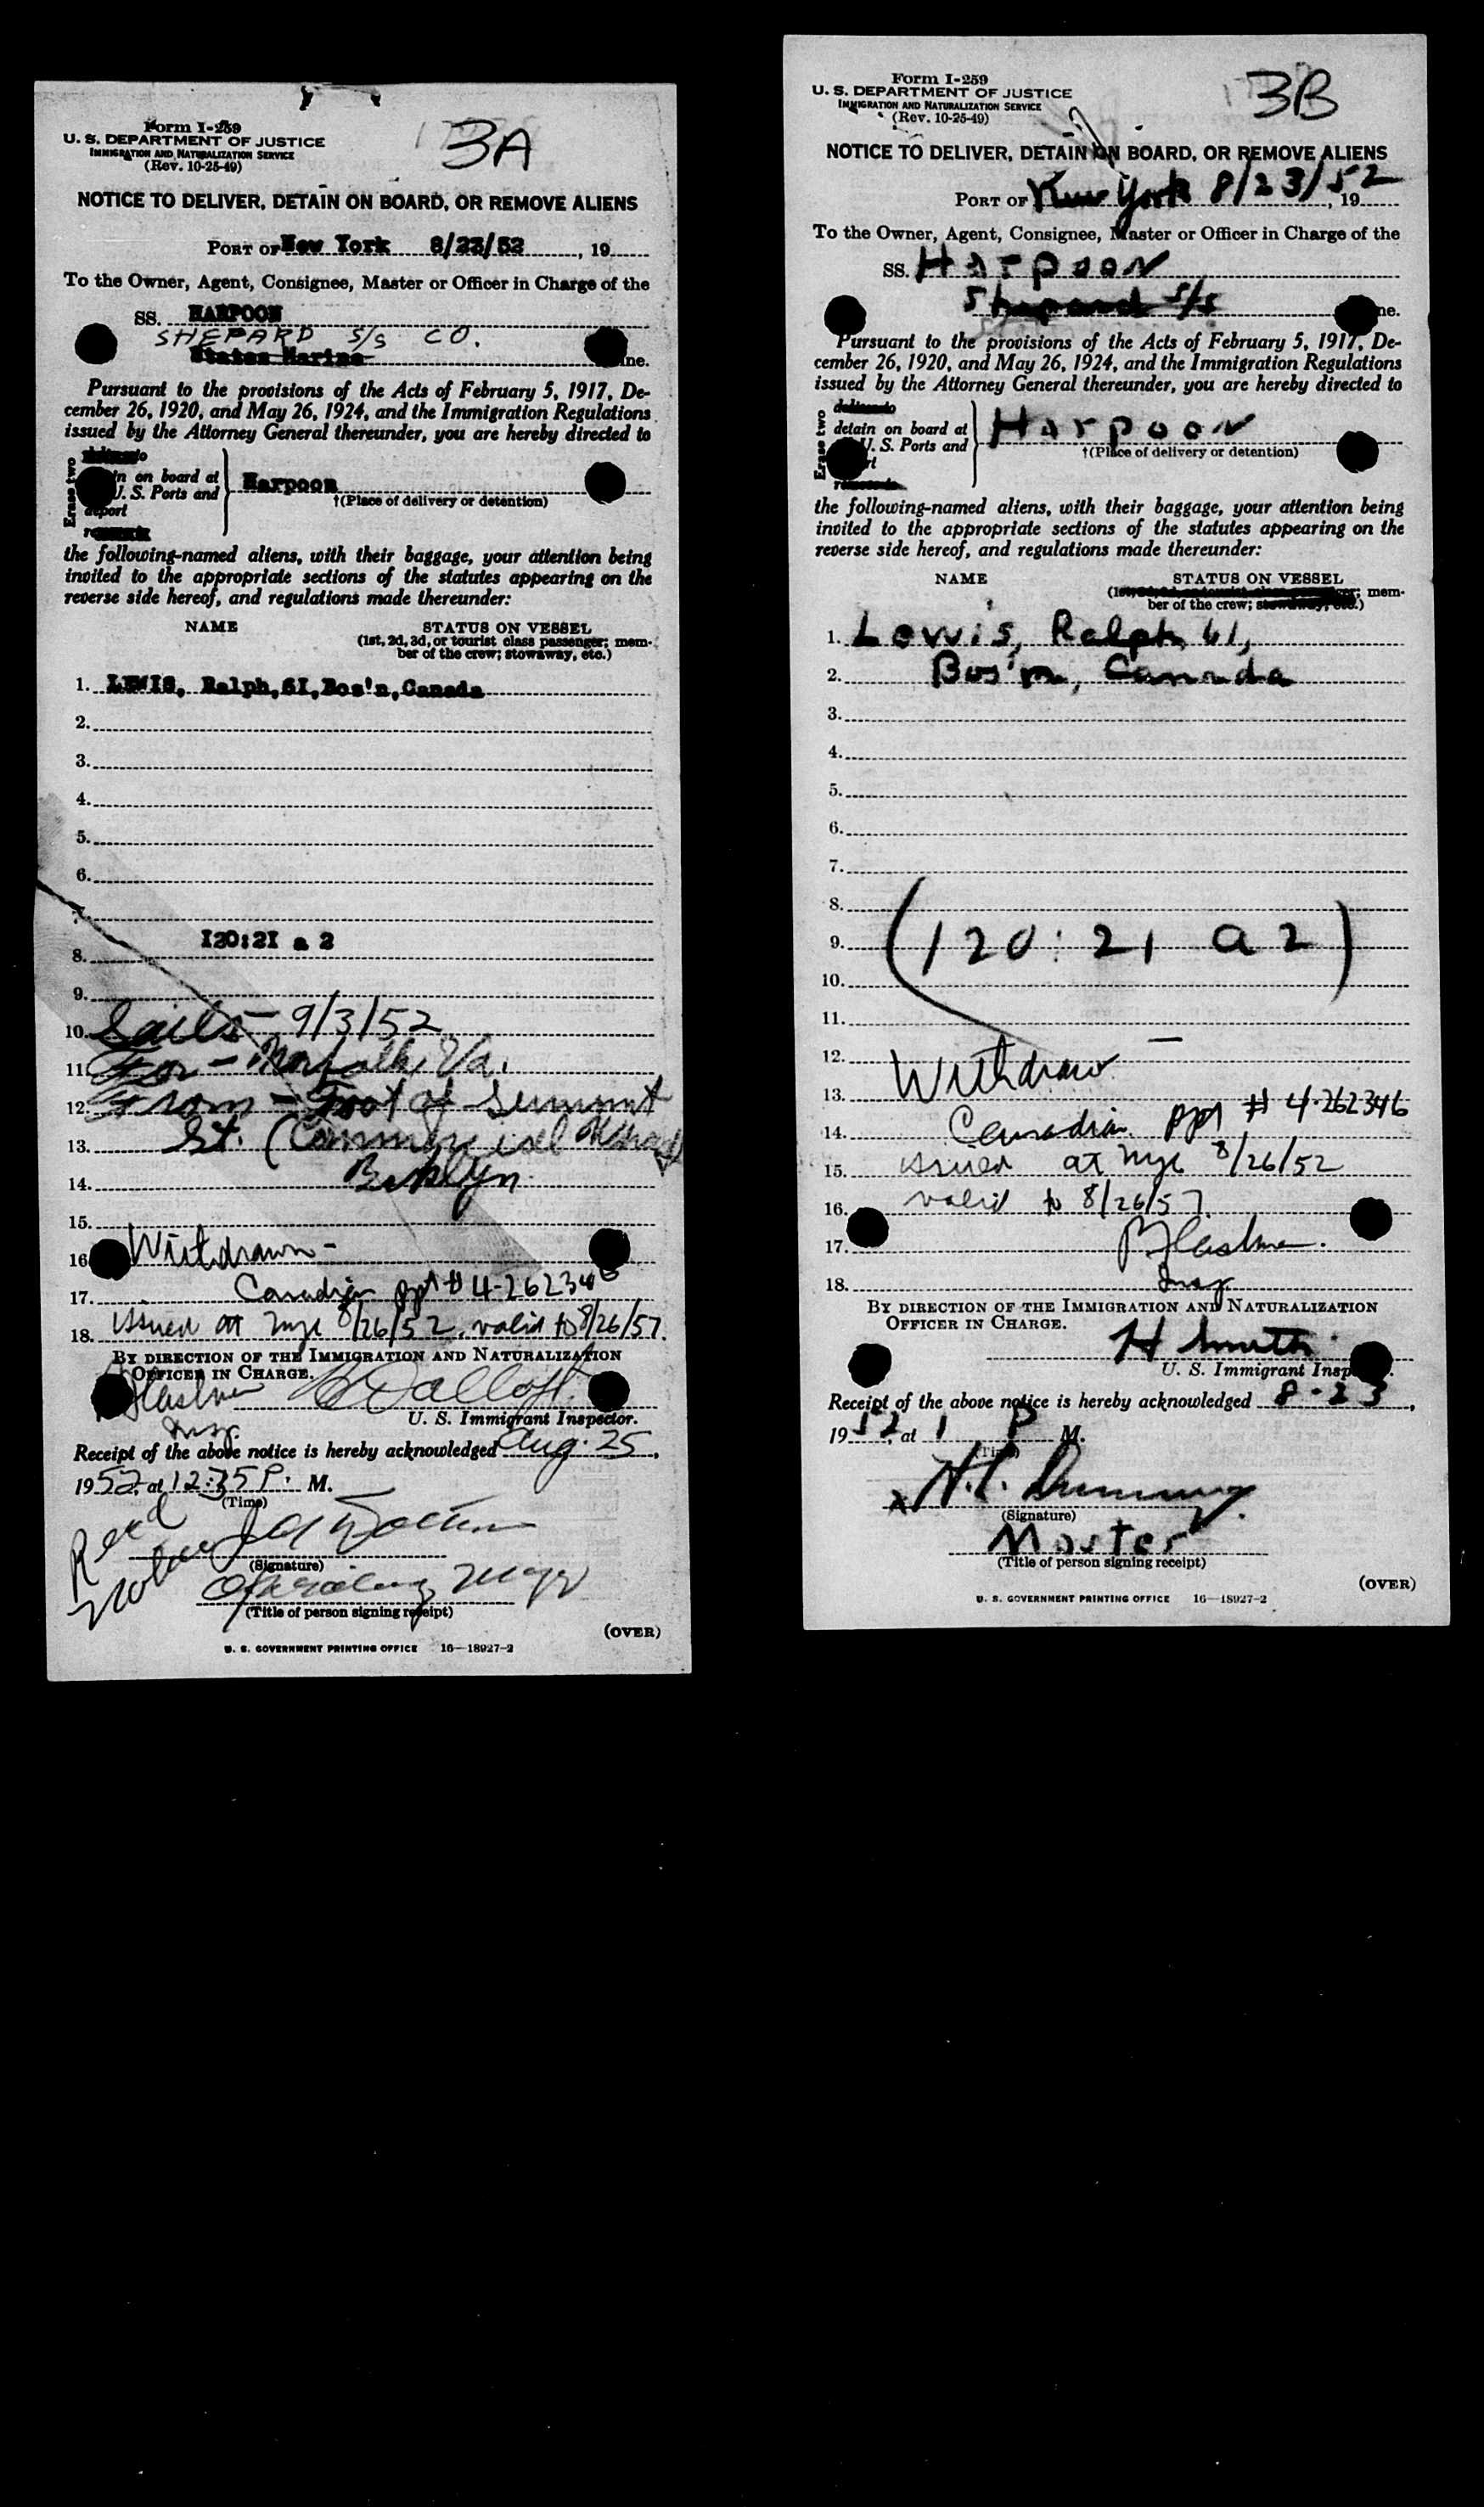 3A
Form I-259
U. S. DEPARTMENT OF JUSTICE
IMMIGRATION AND NATURALIZATION SERVICE
(Rev. 10-25-49)
NOTICE TO DELIVER, DETAIN ON BOARD, OR REMOVE ALIENS
PORT OF New York 8/23/52, 19
To the Owner, Agent, Consignee, Master or Officer in Charge of the
SS. HARPOON
SHEPARD S/S CO.
States Marine ne.
Pursuant to the provisions of the Acts of February 5, 1917, De-
cember 26, 1920, and May 26, 1924, and the Immigration Regulations
issued by the Attorney General thereunder, you are hereby directed to
Erase two
in on board at
U. S. Ports and
deport
Harpoon
†(Place of delivery or detention)
the following-named aliens, with their baggage, your attention being
invited to the appropriate sections of the statutes appearing on the
reverse side hereof, and regulations made thereunder:
NAME STATUS ON VESSEL
(1st, 2d, 3d, or tourist class passenger; mem-
ber of the crew; stowaway, etc.)
1. LEWIS, Ralph, 61, Bos'n, Canada
2.
3.
4.
5.
6.
7.
I20:2I a 2
8.
9.
10. Sails - 9/3/52
11. For - Norfolk, Va.
12. From - Foot of Summit
13. St. (Commercial
14. Bklyn
15.
16. Withdrawn -
17. Canadian ppt # 4-262346
18. issued at nyc 8/26/52, valid to 8/26/57.
BY DIRECTION OF THE IMMIGRATION AND NATURALIZATION
OFFICER IN CHARGE.
Insp.
U. S. Immigrant Inspector.
Receipt of the above notice is hereby acknowledged Aug. 25,
1952, at 12:35 P. M.
(Time)
(Signature)
Operating Mgr
(Title of person signing receipt)
(OVER)
U. S. GOVERNMENT PRINTING OFFICE 16—18927-2
3B
Form I-259
U. S. DEPARTMENT OF JUSTICE
IMMIGRATION AND NATURALIZATION SERVICE
(Rev. 10-25-49)
NOTICE TO DELIVER, DETAIN ON BOARD, OR REMOVE ALIENS
PORT OF New York 8/23/52, 19
To the Owner, Agent, Consignee, Master or Officer in Charge of the
SS. Harpoon
Shepard S/S ne.
Pursuant to the provisions of the Acts of February 5, 1917, De-
cember 26, 1920, and May 26, 1924, and the Immigration Regulations
issued by the Attorney General thereunder, you are hereby directed to
Erase two
detain on board at
U. S. Ports and
Harpoon
†(Place of delivery or detention)
the following-named aliens, with their baggage, your attention being
invited to the appropriate sections of the statutes appearing on the
reverse side hereof, and regulations made thereunder:
NAME STATUS ON VESSEL
mem-
ber of the crew; stowaway, etc.)
1. Lewis, Ralph, 61,
2. Bos'n, Canada
3.
4.
5.
6.
7.
8.
9. (120:21 a 2)
10.
11.
12. Withdrawn -
13.
14. Canadian ppt # 4-262346
15. issued at nyc 8/26/52
16. valid to 8/26/57.
17.
18. Insp
BY DIRECTION OF THE IMMIGRATION AND NATURALIZATION
OFFICER IN CHARGE.
H Smith
U. S. Immigrant Insp
Receipt of the above notice is hereby acknowledged 8-23,
1952, at 1 P M.
(Signature)
Master
(Title of person signing receipt)
(OVER)
U. S. GOVERNMENT PRINTING OFFICE 16—18927-2